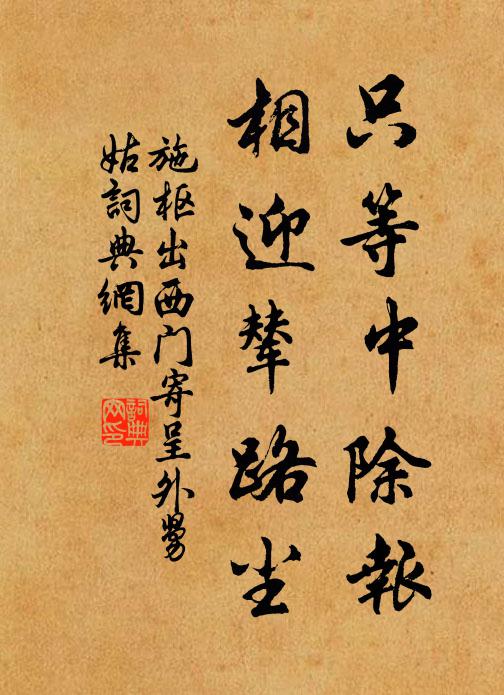 只等中除報
相迎輦路尘
施枢出西门寄呈外舅
姑詞典網集
詞典
网印